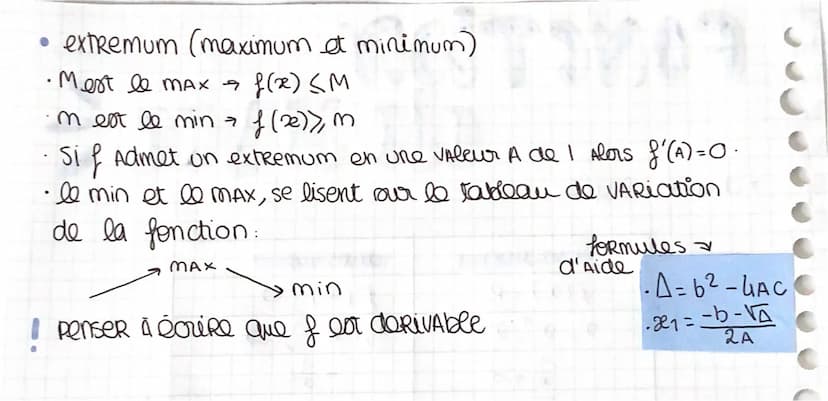 • extremum (maximum et minimum)
· M est le max → f(x) ≤ M
· m est le min → f(x) ⩾ m
· Si f admet un extremum en une valeur A de I alors f'(A)=0.
· le min et le max, se lisent sur le tableau de variation
de la fonction:
max
min
formules
d'aide
· Δ = b² - 4AC
· x₁ = (-b - √Δ)/2A
! penser à écrire que f est dérivable